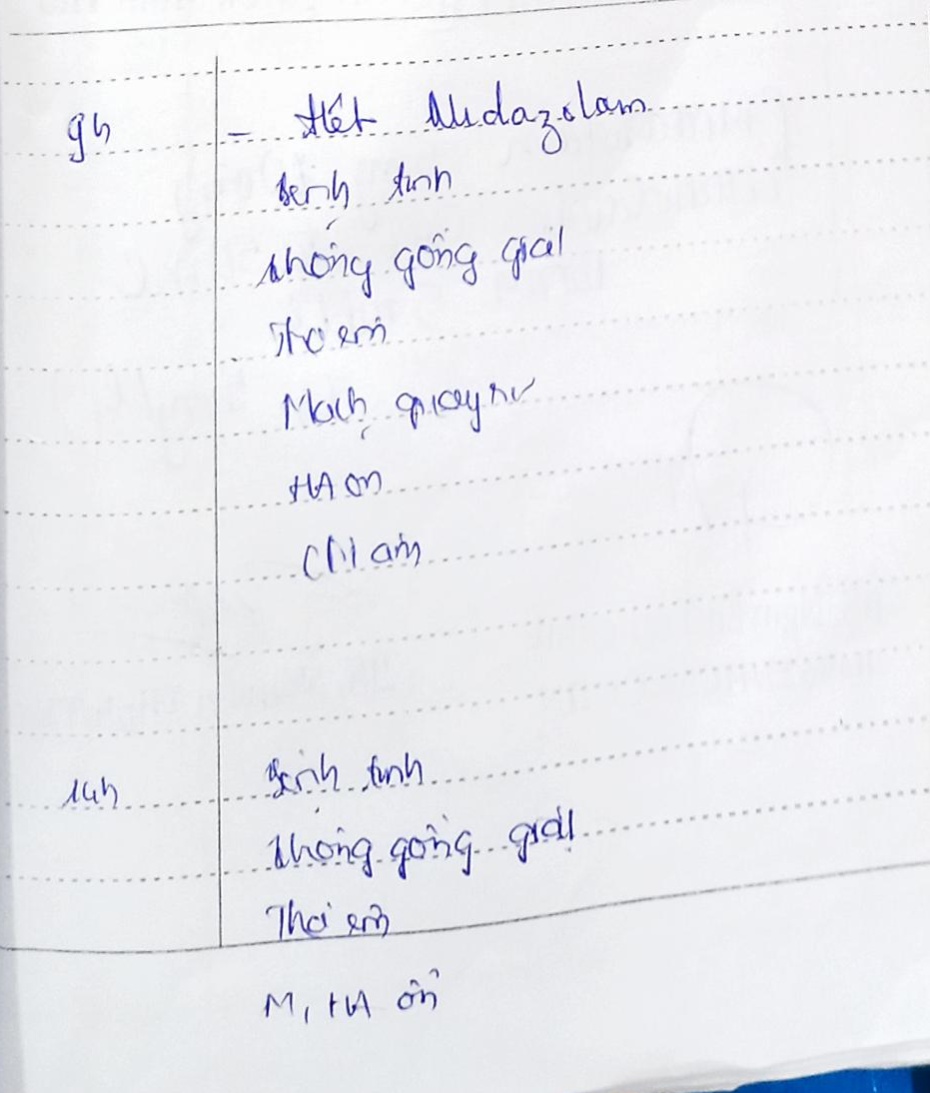 9h - Hết Midazolam
Bệnh tỉnh
Không gồng giật
Thở êm
Mạch quay rõ
HA ổn
Chi ấm
14h Bệnh tỉnh
Không gồng giật
Thở êm
M, HA ổn